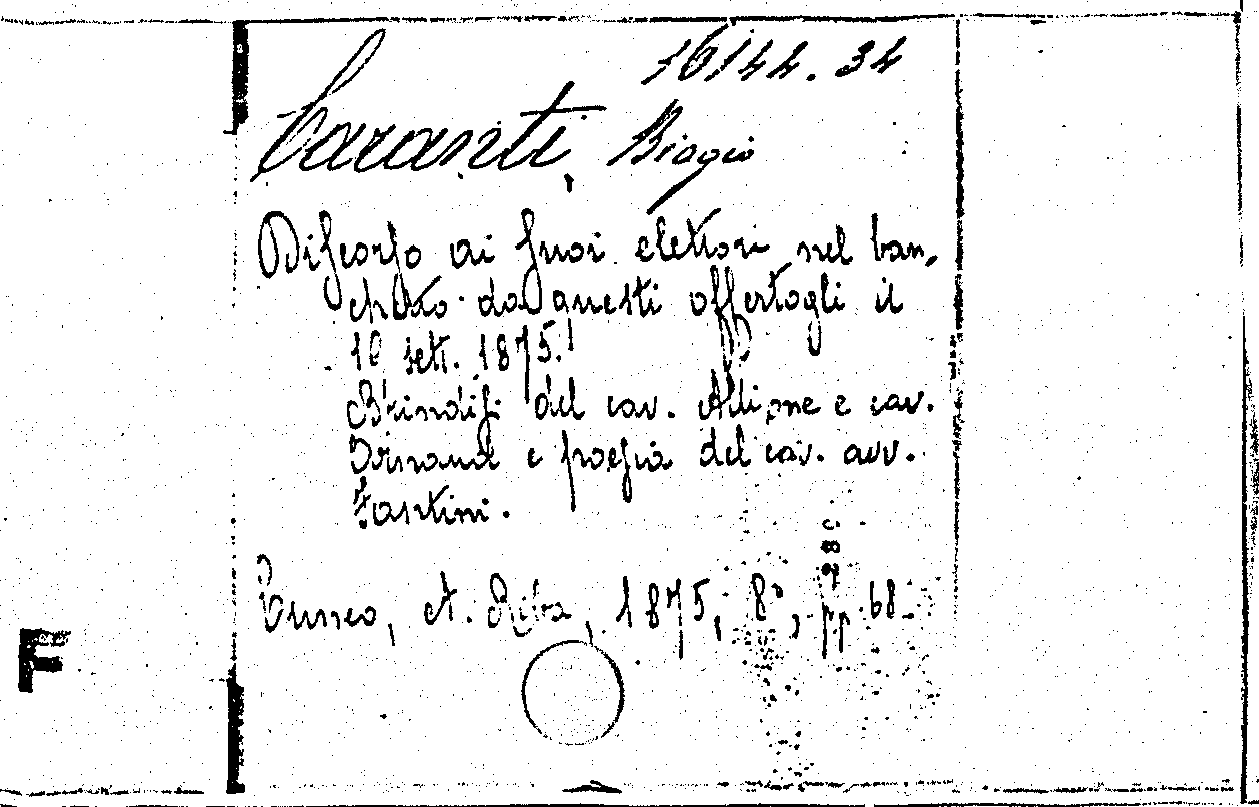 16144.34
Caranti, Biagio
Discorso ai suoi elettori nel ban-
chetto da questi offertogli il
10 sett. 1875.
Brindisi del cav. Allione e cav.
e poesia del cav. avv.
Fantini.
28c
Cuneo, A. Riba, 1875, 8°, pp. 68.
F